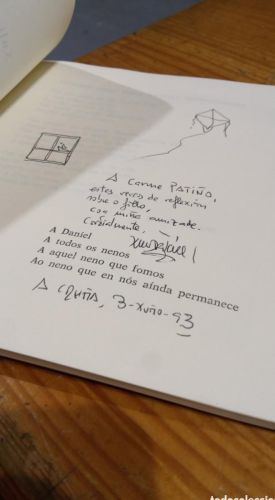 A Carme PATIÑO,
estes versos de reflexión
sobre o fillo,
con miña amizade.
Cordialmente,
A Daniel
A todos os nenos
A aquel neno que fomos
Ao neno que en nós aínda permanece
A CRUÑA, 3-XUÑO-93
todocoleccion